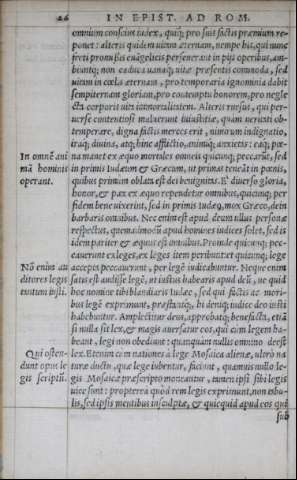 26 IN EPIST. AD ROM.
omnium conscius iudex, quiq; pro suis factis præmium re-
ponet: alteris quidem uitam æternam, nempe his, qui nunc
freti promissis euāgelicis perseuerant in pijs operibus, am-
biuntq; non caducà uanaq; uitæ præsentis commoda, sed
uitam in cœlis æternam, pro temporaria ignominia dabit
sempiternam gloriam, pro contemptu honorem, pro neglē
ctu corporis uitæ immortalitatem. Alteris rursus, qui per-
uerse contentiosi maluerint iniustitiæ, quam ueritati ob-
temperare, digna factis merces erit, nimirum indignatio,
ira q; diuina, atq; hinc afflictio, animiq; anxietas: eaq; pœ-
In omnē ani na manet ex æquo mortales omneis quicunq; peccarūt, sed
mā hominis in primis Iudæum & Græcum, ut primas teneāt in pœnis,
operant. quibus primum oblata est dei benignitas. E' diuerso gloria,
honor, & pax ex æquo rependetur omnibus, quicunq; per
fidem bene uixerint, sed in primis Iudæo, mox Græco, dein
barbaris omnibus. Nec enim est apud deum ullus personæ
respectus, quemadmodū apud homines iudices solet, sed is
idem pariter & æquus est omnibus. Proinde quicunq; pec-
cauerunt exleges, ex leges item peribunt: et quicunq; lege
Nō enim au accepta peccauerunt, per legē iudicabuntur. Neque enim
ditores legis satis est audisse legē, ut iustus habearis apud deū, ne quid
iustum iusti. hoc nomine tibi blandiaris Iudæe, sed qui factis ac mori-
bus legē exprimunt, præstātq;, hi deniq; iudice deo iusti
habebuntur. Amplectitur deus, approbatq; benefacta, etiā
si nulla sit lex, & magis auersatur eos, qui cùm legem ha-
beant, legi non obediant: quanquam nullus omnino deest
Qui osten- lex. Etenim cùm nationes à lege Mosaica alienæ, ultrò na
dunt opus le turæ ductu, quæ lege iubentur, faciunt, quamuis nullo le-
gis scriptū. gis Mosaicæ præscripto moneantur, tamen ipsi sibi legis
uice sunt: propterea quòd rem legis exprimunt, non tabu-
lis, sed ipsis mentibus insculptæ, & quicquid apud eos qui
sub